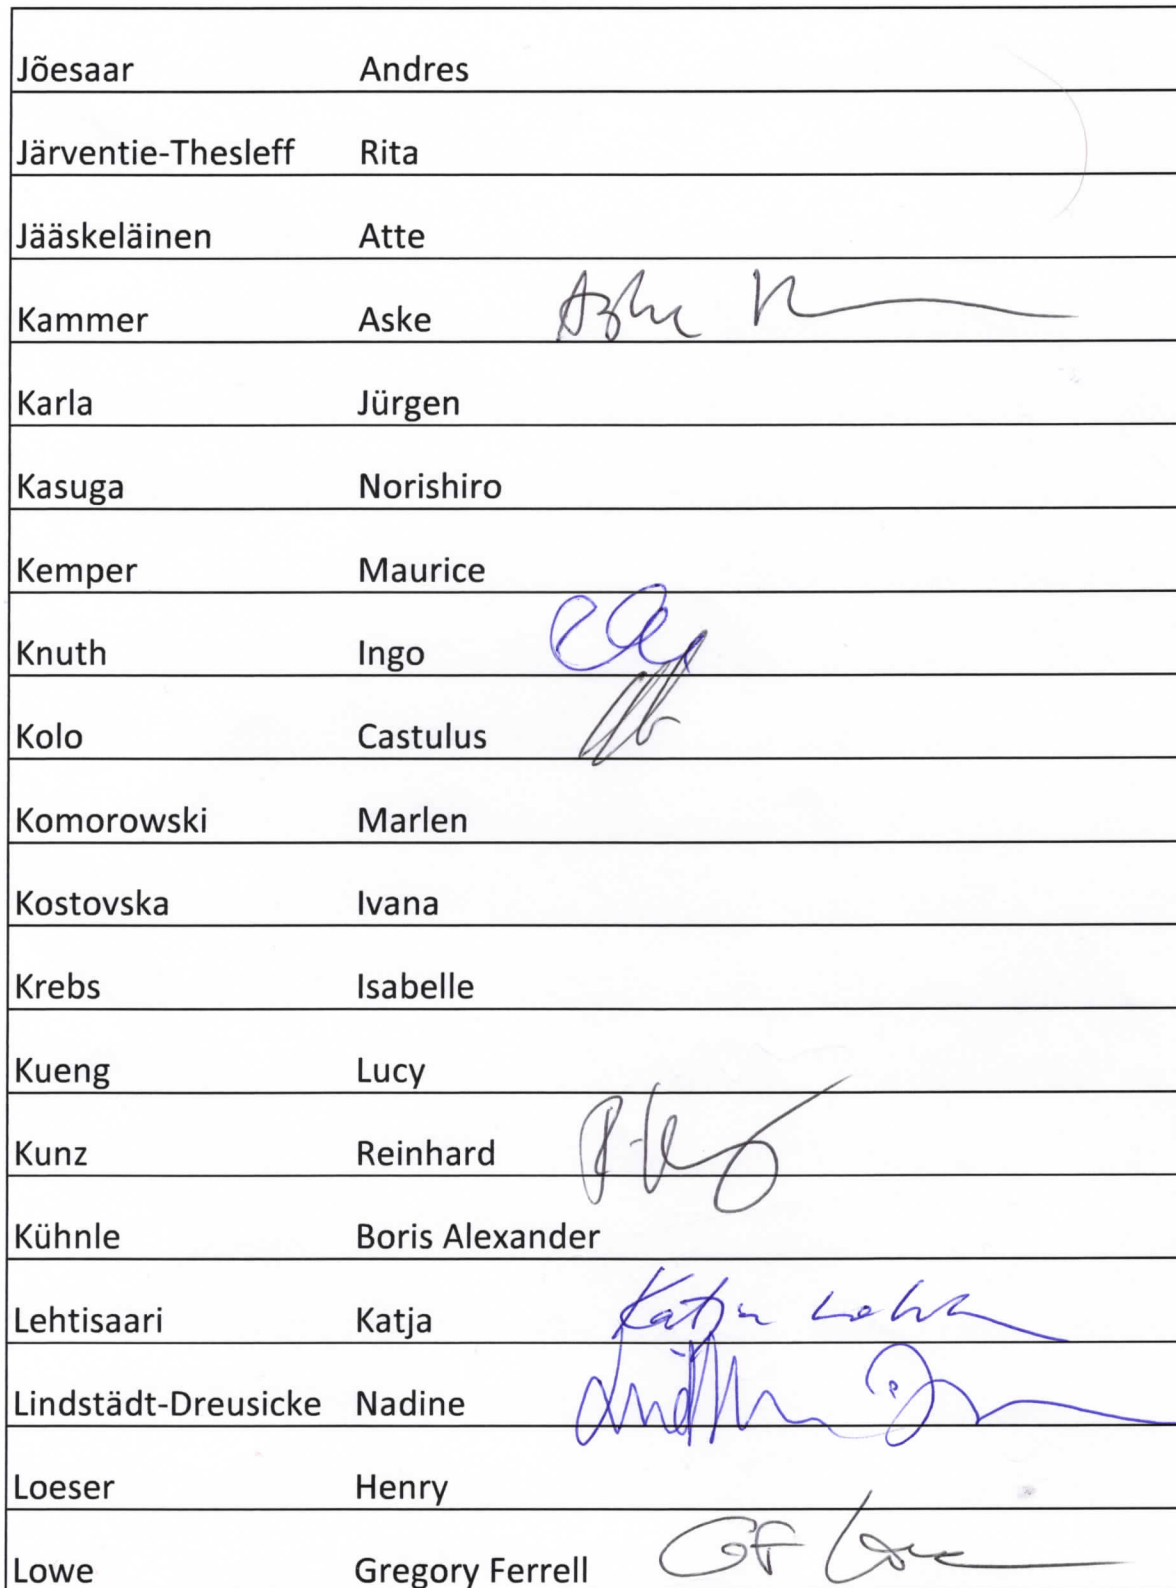 Jõesaar Andres
Järventie-Thesleff Rita
Jääskeläinen Atte
Kammer Aske Aske K
Karla Jürgen
Kasuga Norishiro
Kemper Maurice
Knuth Ingo
Kolo Castulus
Komorowski Marlen
Kostovska Ivana
Krebs Isabelle
Kueng Lucy
Kunz Reinhard
Kühnle Boris Alexander
Lehtisaari Katja Katja
Lindstädt-Dreusicke Nadine
Loeser Henry
Lowe Gregory Ferrell GF Lowe